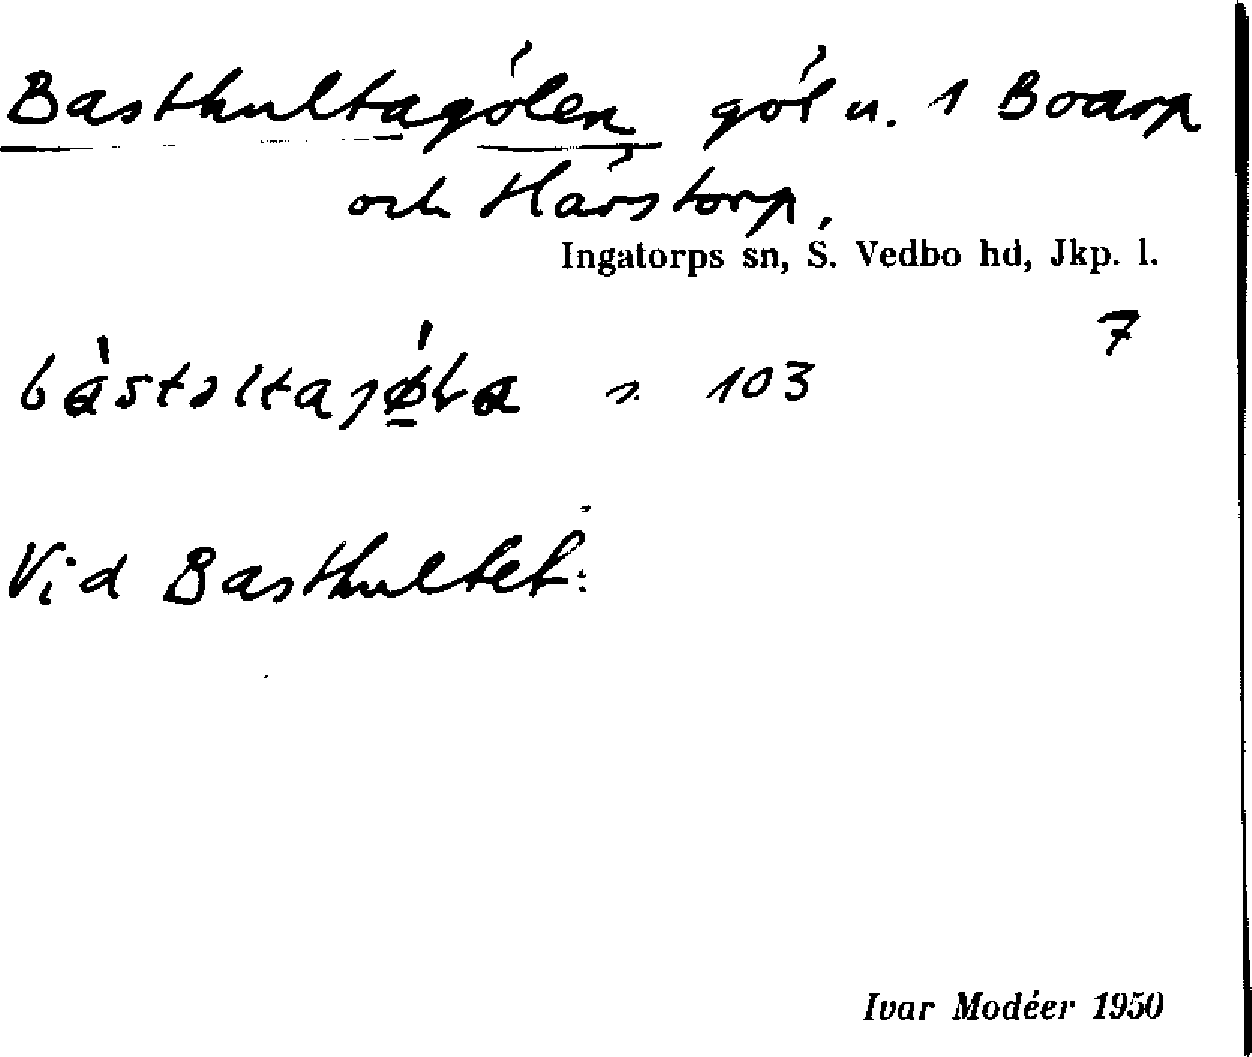 Basthultagölen göl u. 1 Boarp
och Hårstorp,
Ingatorps sn, S. Vedbo hd, Jkp. l.
7
103
Vid Basthultet.
Ivar Modéer 1950